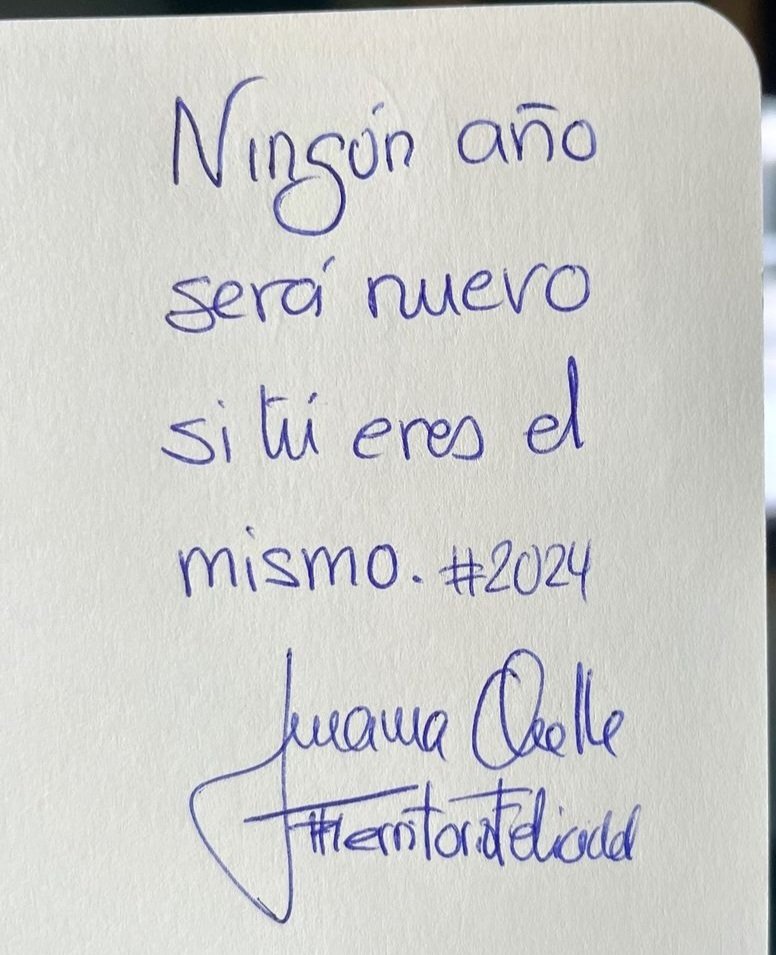 Ningún año
será nuevo
si tú eres el
mismo. #2024
Juana
#TerritorioFelicidad